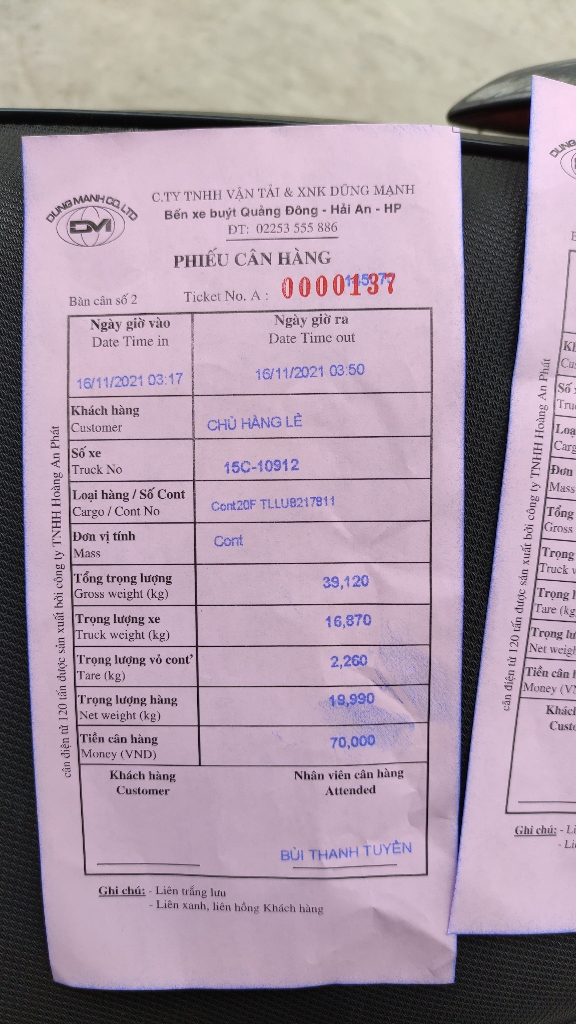 DUNG MANH CO.,LTD
DM
C.TY TNHH VẬN TẢI & XNK DŨNG MẠNH
Bến xe buýt Quảng Đông - Hải An - HP
ĐT: 02253 555 886
PHIẾU CÂN HÀNG
Bàn cân số 2
Ticket No. A : 0000137
Ngày giờ vào
Date Time in
Ngày giờ ra
Date Time out
16/11/2021 03:17
16/11/2021 03:50
Khách hàng
Customer
CHỦ HÀNG LẺ
Số xe
Truck No
15C-10912
Loại hàng / Số Cont
Cargo / Cont No
Cont20F TLLU8217811
Đơn vị tính
Mass
Cont
Tổng trọng lượng
Gross weight (kg)
39,120
Trọng lượng xe
Truck weight (kg)
16,870
Trọng lượng vỏ cont'
Tare (kg)
2,260
Trọng lượng hàng
Net weight (kg)
19,990
Tiền cân hàng
Money (VND)
70,000
Khách hàng
Customer
Nhân viên cân hàng
Attended
BÙI THANH TUYỀN
Ghi chú: - Liên trắng lưu
- Liên xanh, liên hồng Khách hàng
cân điện tử 120 tấn được sản xuất bởi công ty TNHH Hoàng An Phát
cân điện tử 120 tấn được sản xuất bởi công ty TNHH Hoàng An Phát
Số
Đơn
Mass
Tổng
Gross
Trọng
Truck
Trọng
Tare (kg)
Trọng
Net
Tiền cân
Money
Ghi chú: